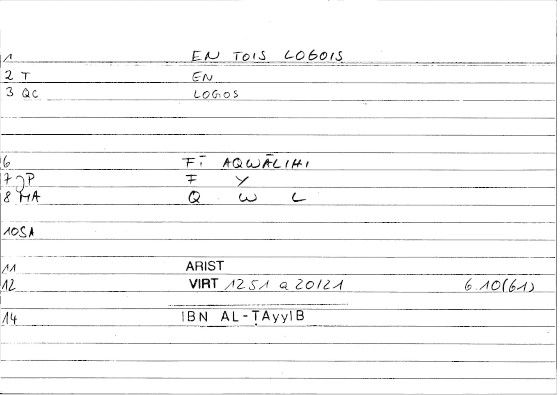 1 EN TOIS LOGOIS
2 T EN
3 QC LOGOS
6 FĪ AQWĀLIHI
7 JP F Y
8 MA Q W L
10 SA
11 ARIST
12 VIRT 1251 a 20/21 6.10(61)
14 IBN AL-ṬAyyIB